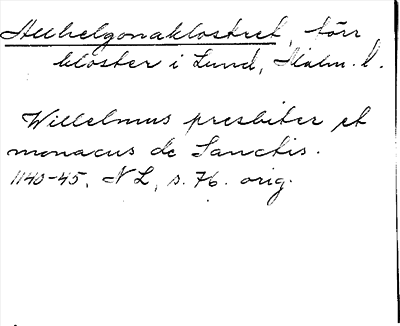 Allhelgonaklostret, förr
kloster i Lund, Malm. l.
Willelmus presbiter et
monacus de Sanctis.
1140-45. NL, s. 76. orig.